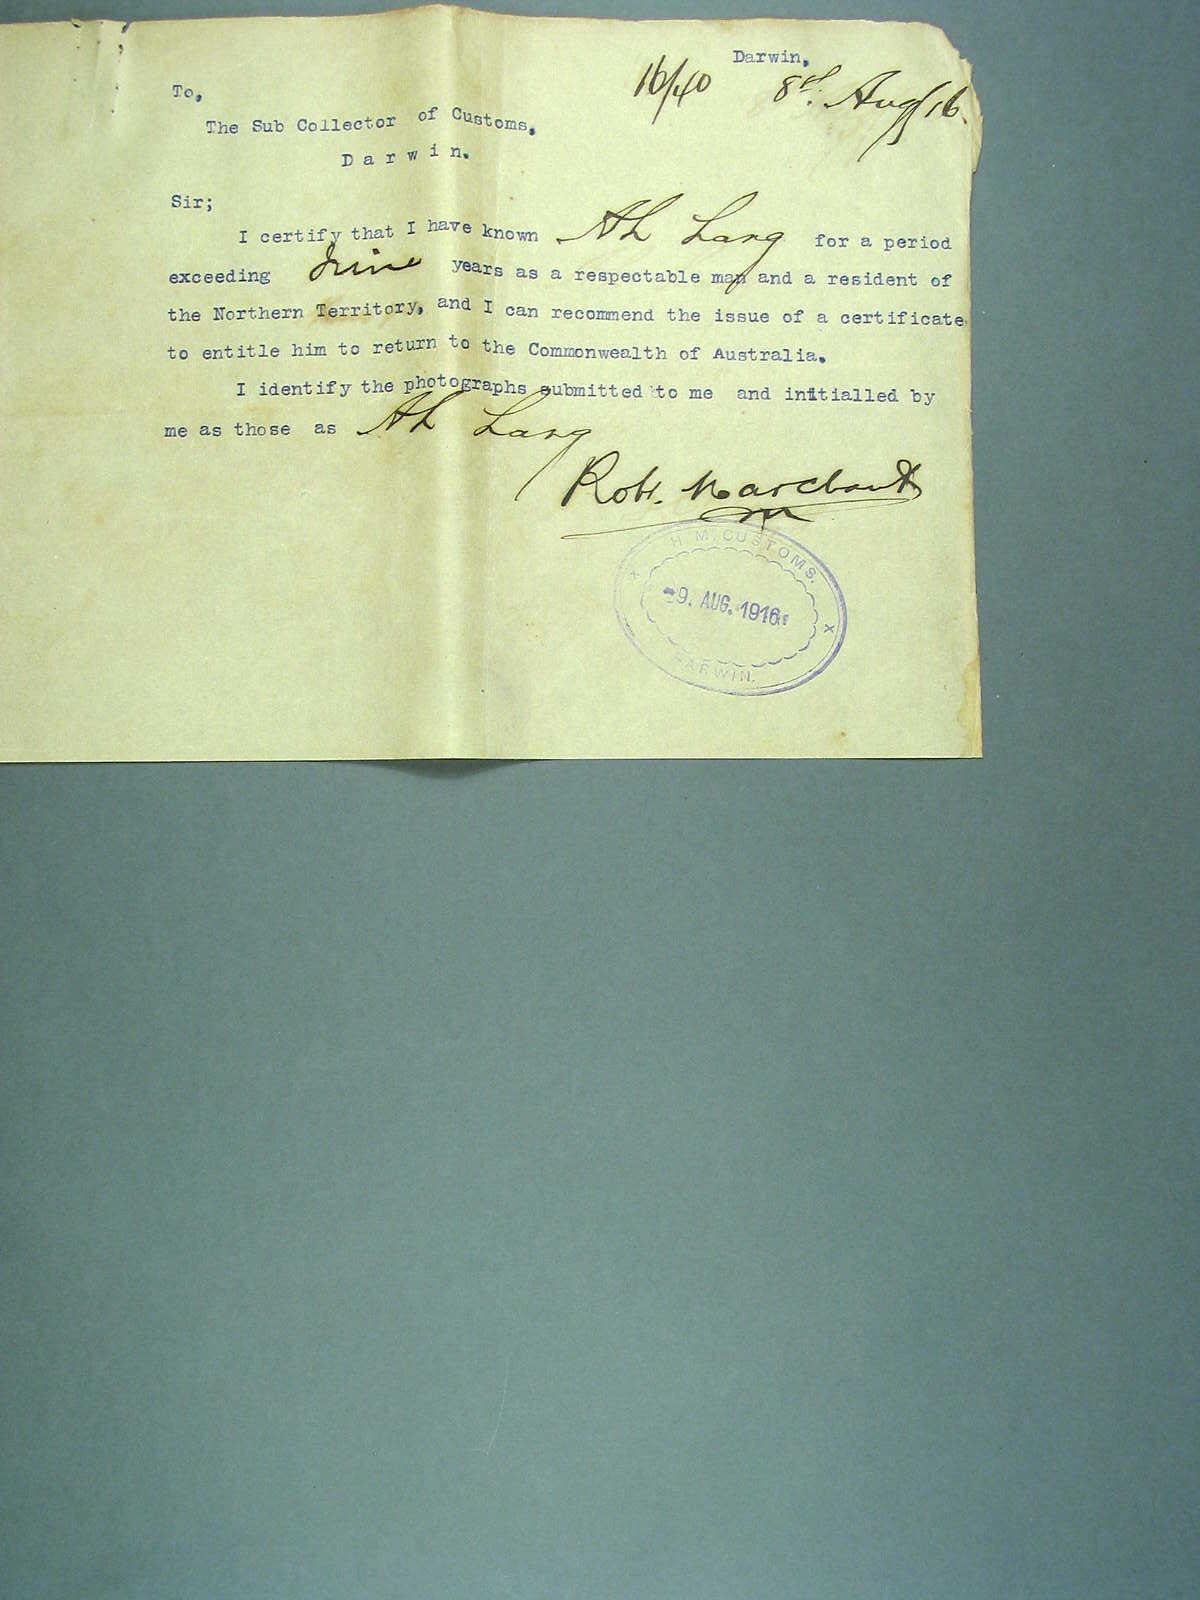 Darwin,
16/40 8th Aug/16.
To,
The Sub Collector of Customs,
Darwin.
Sir;
I certify that I have known Ah Lang for a period
exceeding nine years as a respectable man and a resident of
the Northern Territory, and I can recommend the issue of a certificate
to entitle him to return to the Commonwealth of Australia.
I identify the photographs submitted to me and initialled by
me as those as Ah Lang
Robt. Marchant
H. M. CUSTOMS.
9. AUG. 1916
DARWIN.